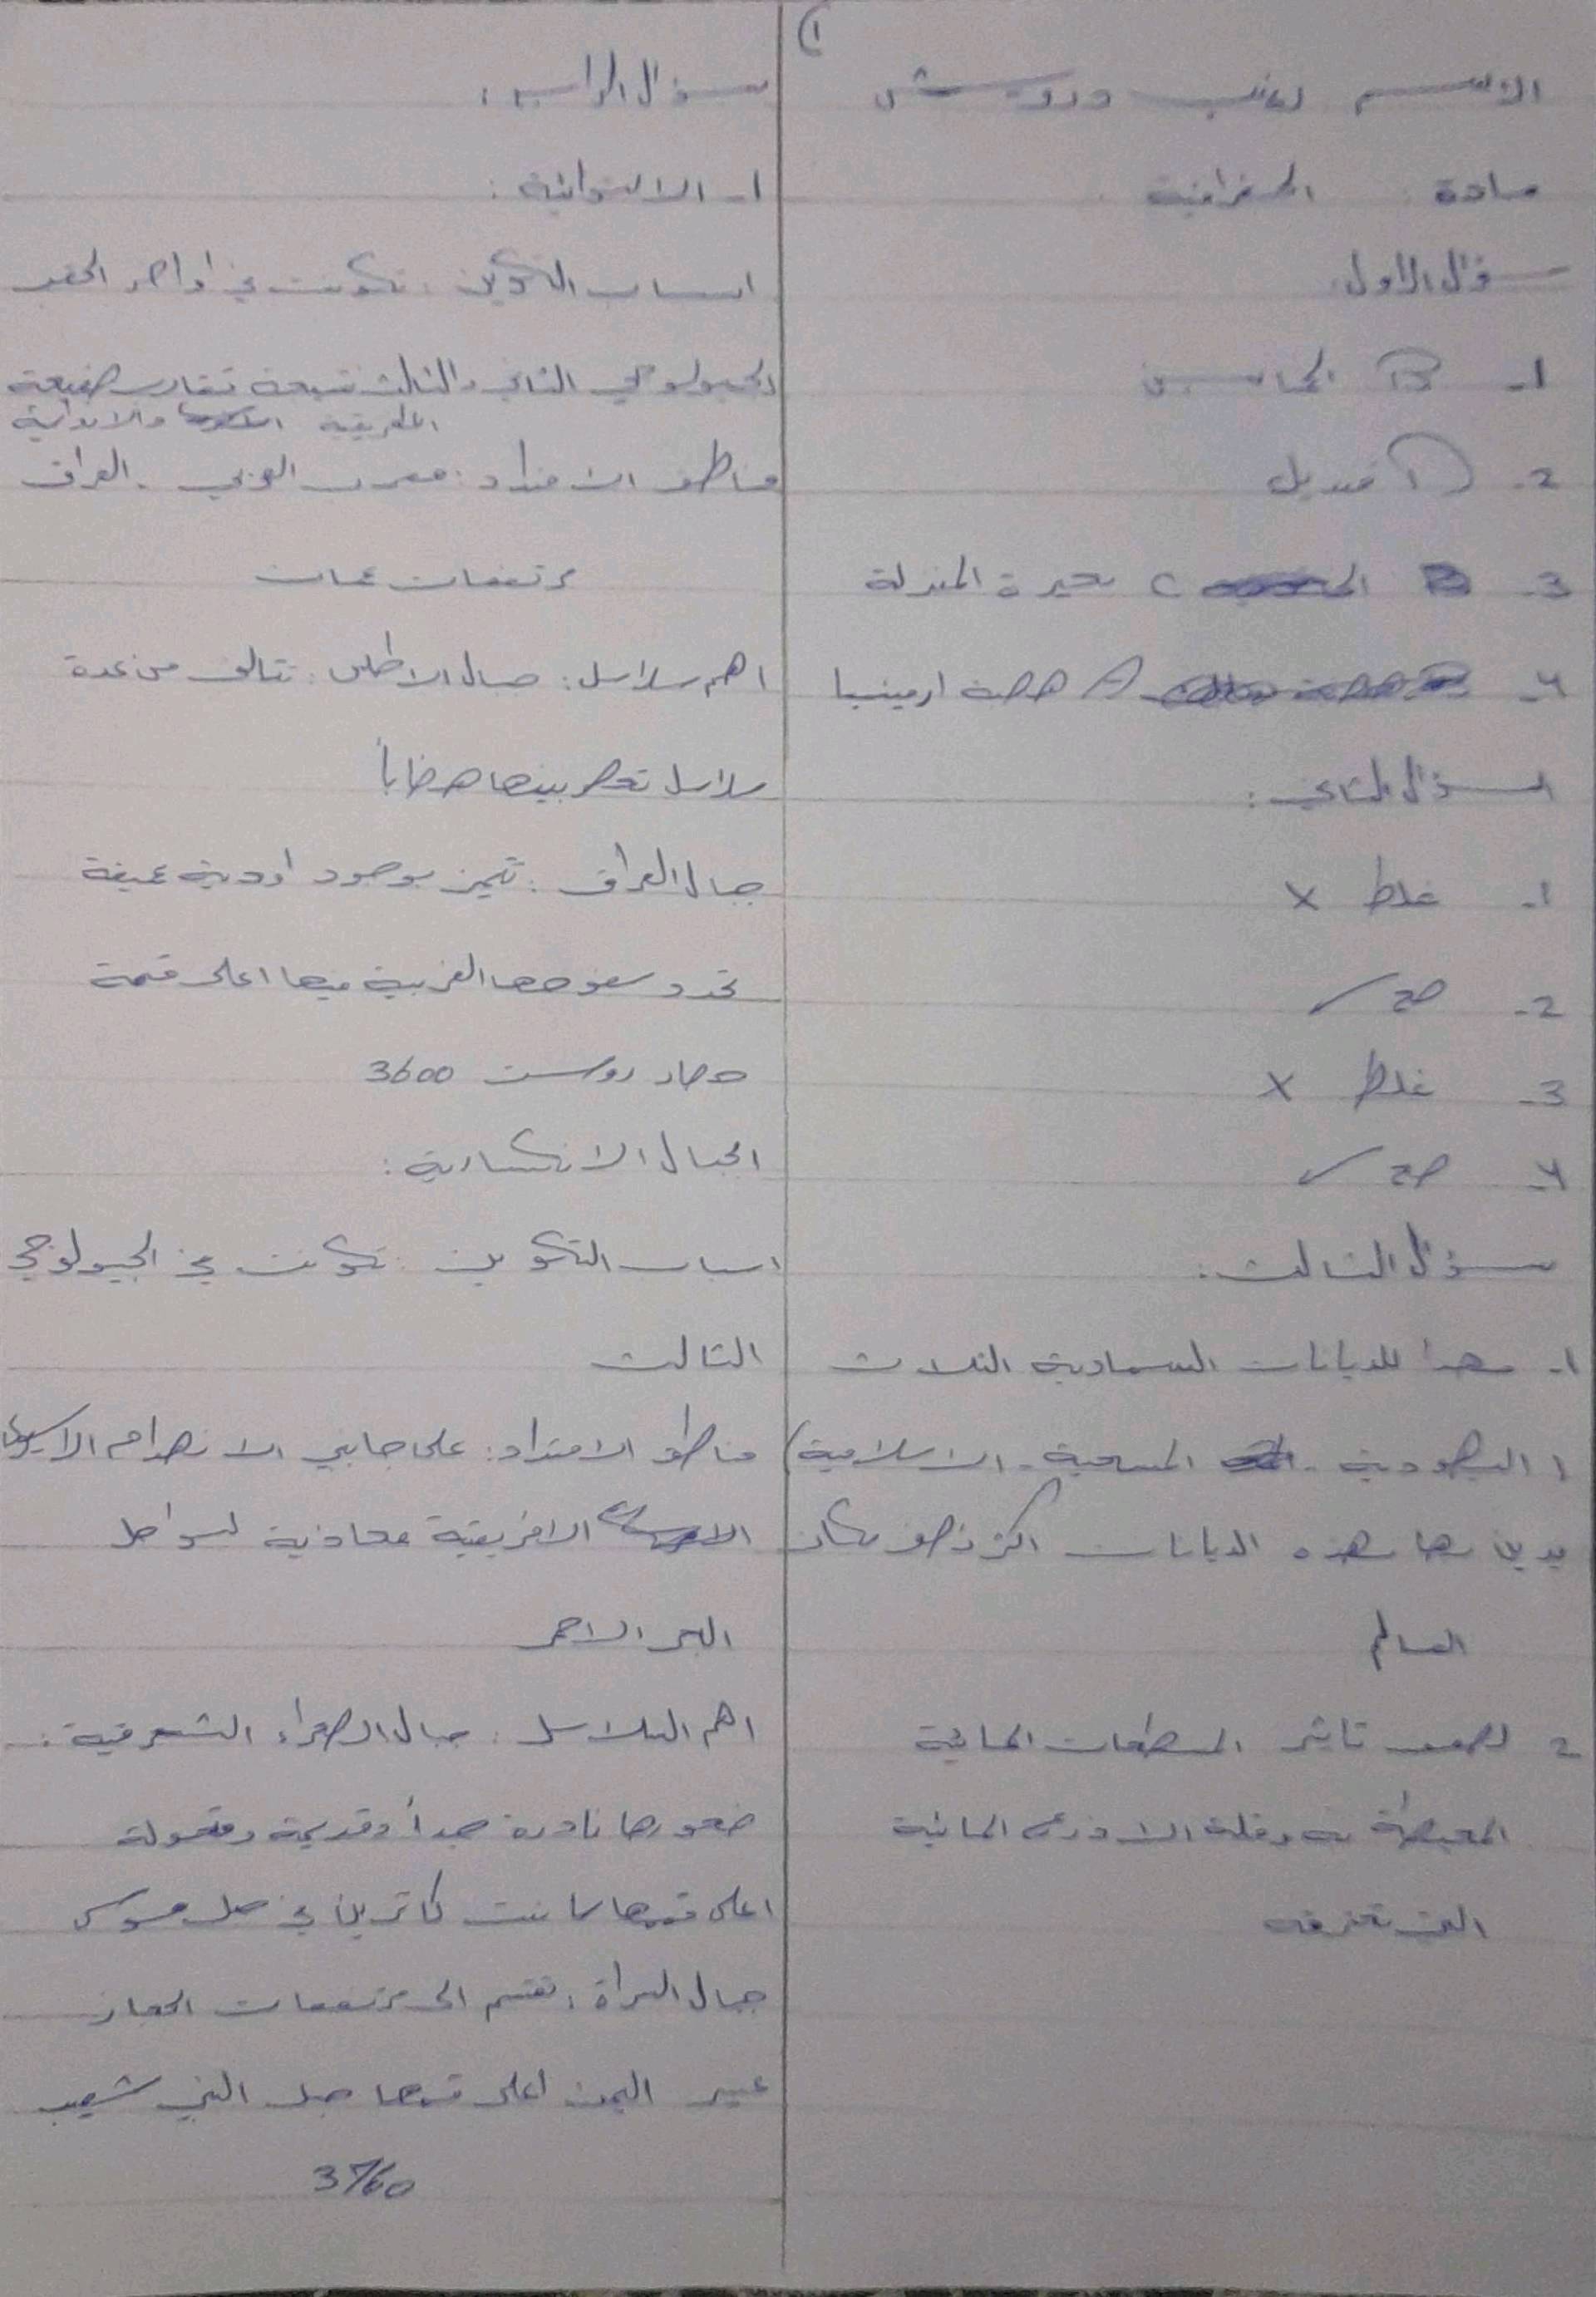 (1
الاسم زينب درويش
مادة الجغرافية
سؤال الاول:
1- B الخامسين
2- D قنديل
3- C بحيرة المنزلة
4- A هضبة ارمينيا
السؤال الثاني:
1- غلط X
2- صح ✓
3- غلط X
4- صح ✓
سؤال الثالث:
1- مهدا للديانات السماوية الثلاث
(اليهودية - المسيحية - الاسلامية)
يدين بهذه الديانات اكثر نصف سكان
العالم
2- لضعف تأثير المسطحات المائية
المحيطة به وقلة الاذرع المائية
التي تخترقه
سؤال الرابع:
1- الالتوائية:
اسباب التكوين: تكونت في اواخر الحقب
الجيولوجي الثاني والثالث نتيجة تقارب صفيحة
الافريقية والاوراسية
مناطق الامتداد: المغرب العربي - العراق
مرتفعات عمان
اهم سلاسل: جبال الاطلس: تتألف من عدة
سلاسل تحصر بينها هضاباً
جبال العراق: تتميز بوجود اودية عميقة
تحدد سفوحها الغربية فيها اعلى قمة
حصار روست 3600
الجبال الانكسارية:
اسباب التكوين: تكونت في الجيولوجي
الثالث
مناطق الامتداد: على جانبي الانهدام الاسيوي
الافريقية محاذية لسواحل
البحر الاحمر
اهم السلاسل: جبال الصحراء الشرقية:
صخورها نادرة جداً وقديمة ومتحولة
اعلى قممها سانت كاترين في جبل موسى
جبال السراة: تقسم الى مرتفعات الحجاز
عسير اليمن اعلى قممها جبل النبي شعيب
3760